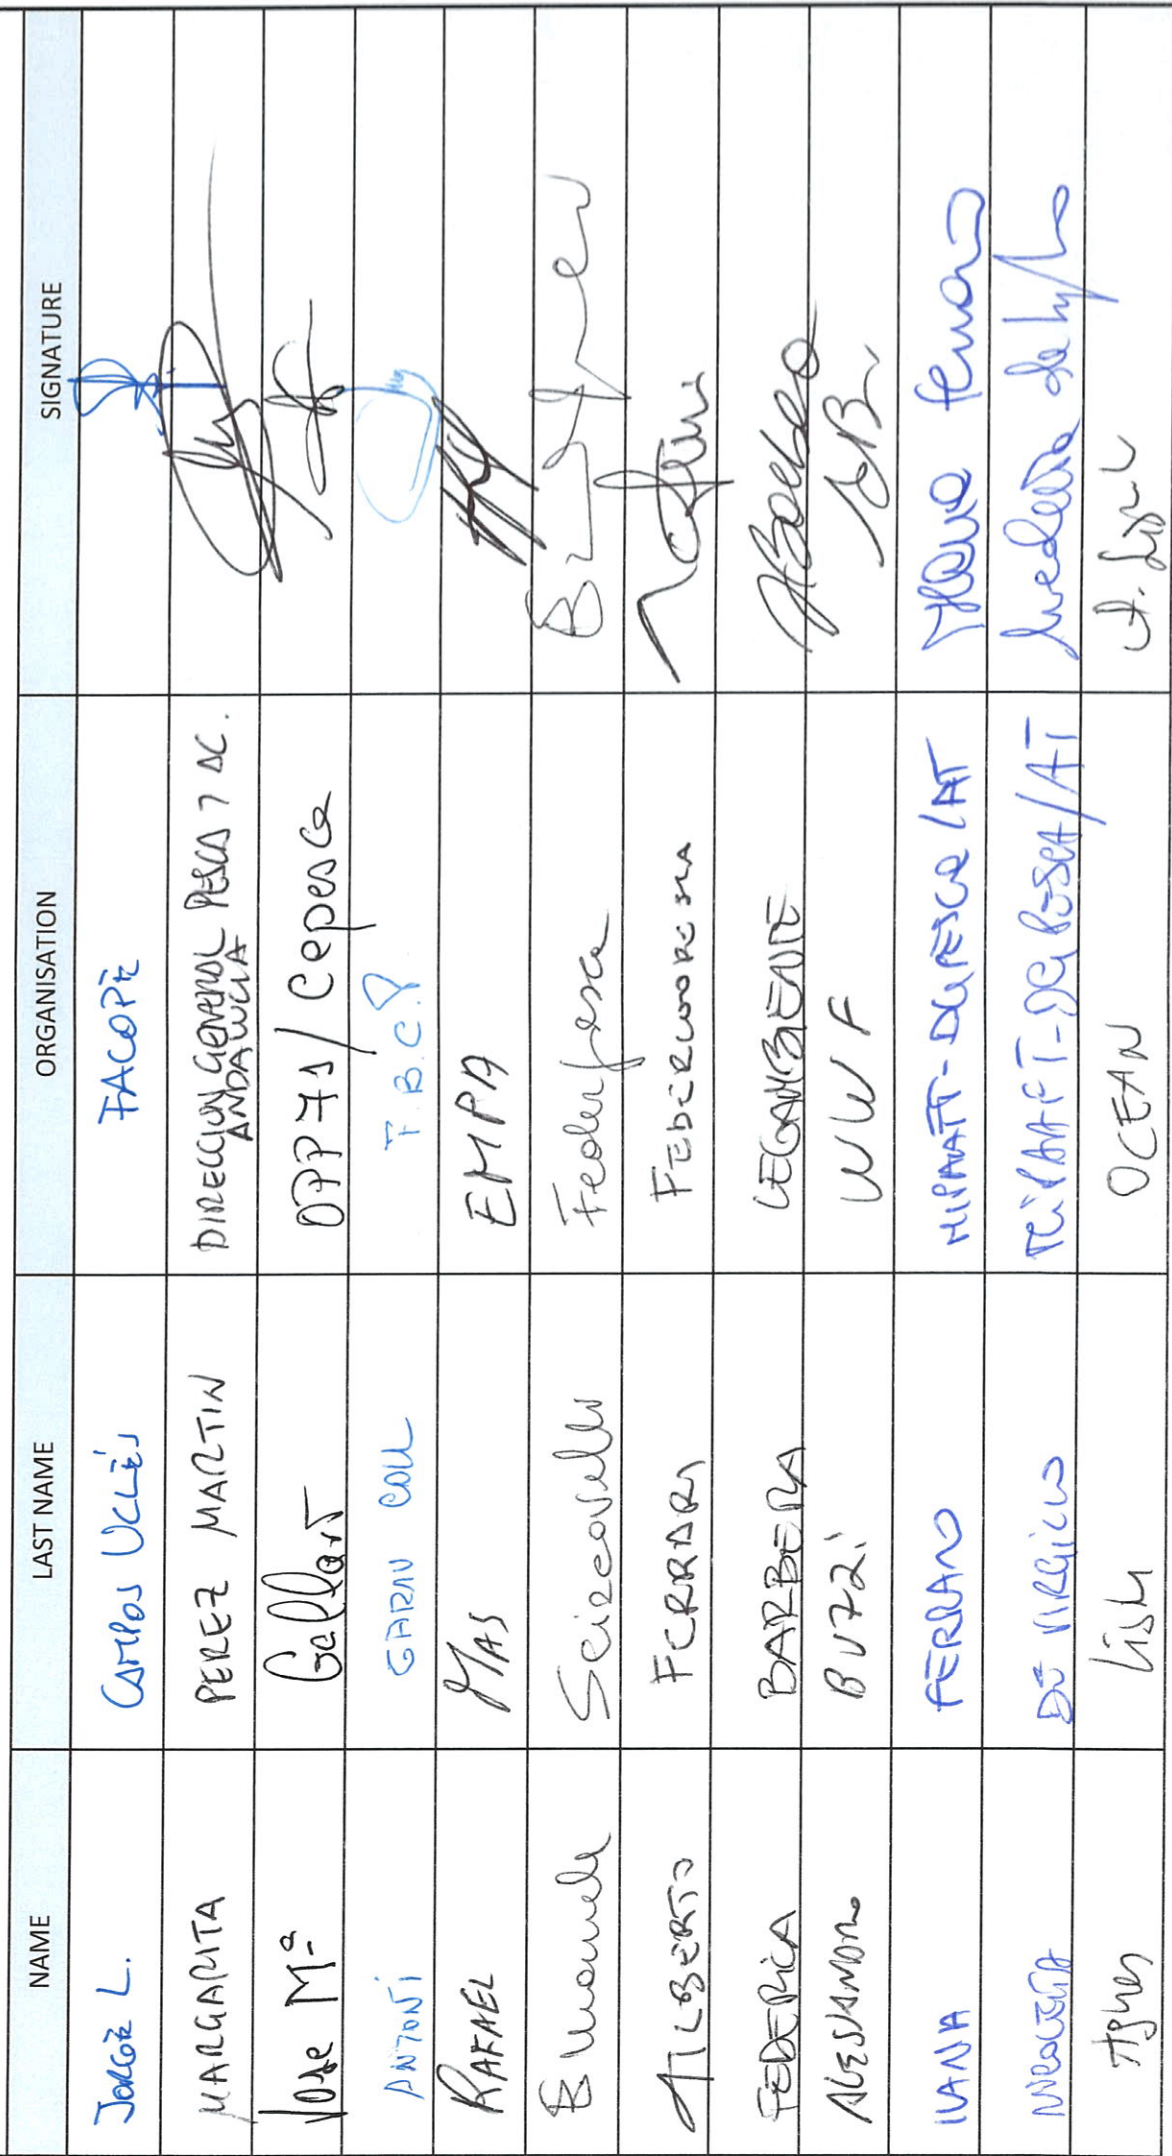 NAME LAST NAME ORGANISATION SIGNATURE
JORGE L. CAMPOS UCLÉS FACOPE
MARGARITA PEREZ MARTIN DIRECCION GENERAL PESCA Y AC. ANDALUCIA
Jose Mª Gallart OPP 71 / Cepesca
ANTONI GARAU COLL F.B.C.P
RAFAEL MAS EMPA
Emanuele Sciacovelli Federpesca
ALBERTO FERRARI FEDERCOOPESCA
FEDERICA BARBERA LEGAMBIENTE
ALESSANDRO BUZZI WWF
IVANA FERRARO MIPAAFT-DGPESCA/AT
DI VIRGILIO MIPAAFT-DG PESCA/AT
Agnes Lisik OCEAN